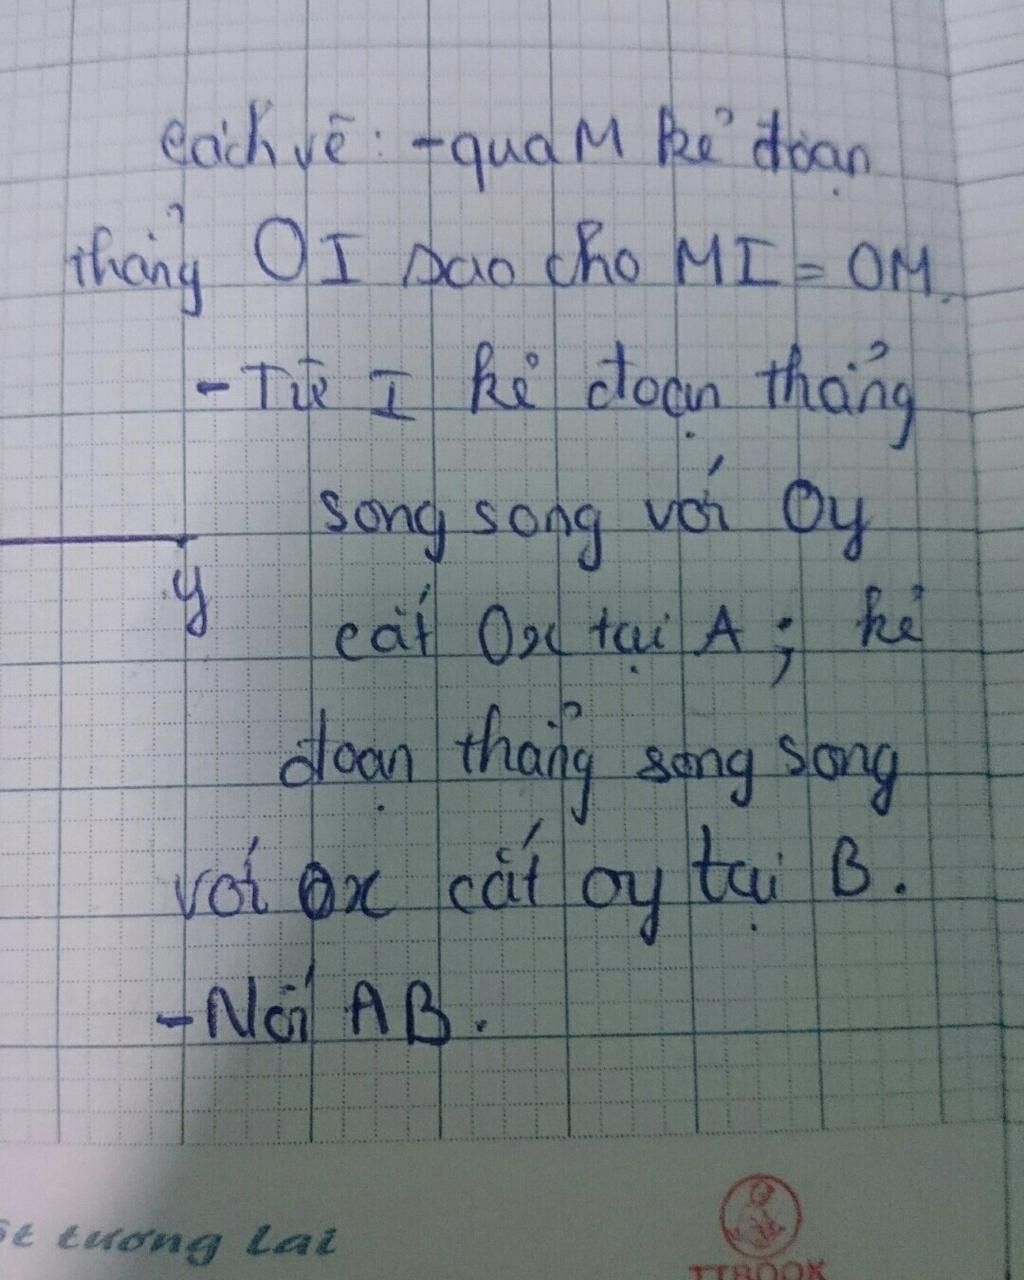 Cách vẽ: - qua M kẻ đoạn
thẳng OI sao cho MI = OM.
- Từ I kẻ đoạn thẳng
song song với Oy
y
cắt Ox tại A; kẻ
đoạn thẳng song song
với Ox cắt oy tại B.
- Nối AB.
tương lai
TTBOOK